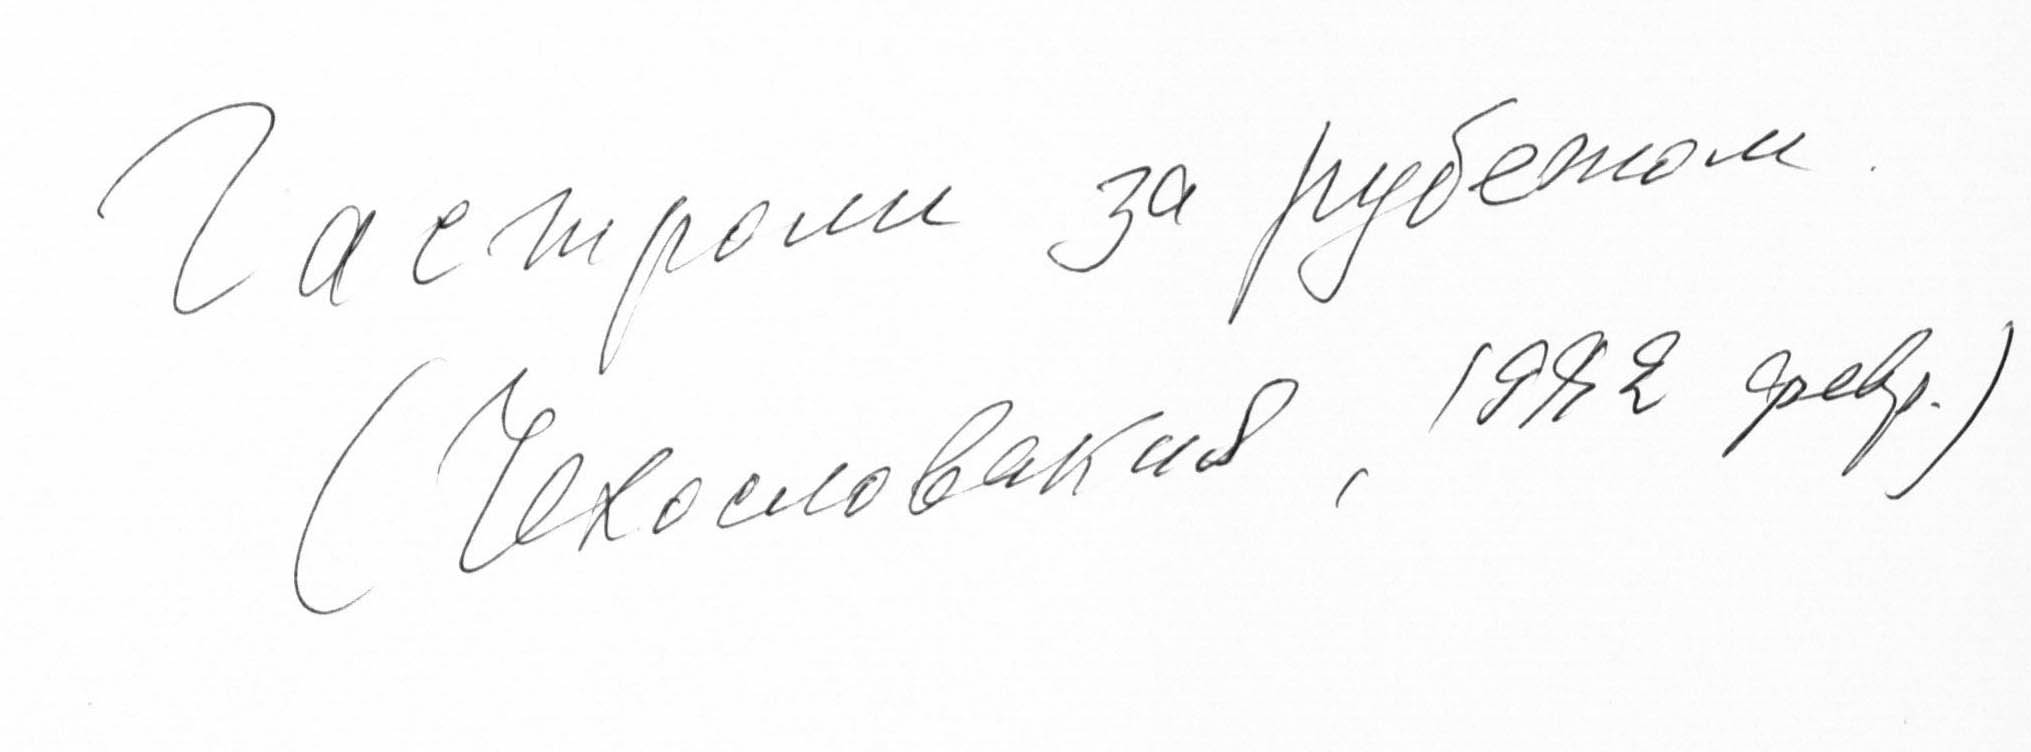 Гастроли за рубежом.
(Чехословакия, 1992 февр.)